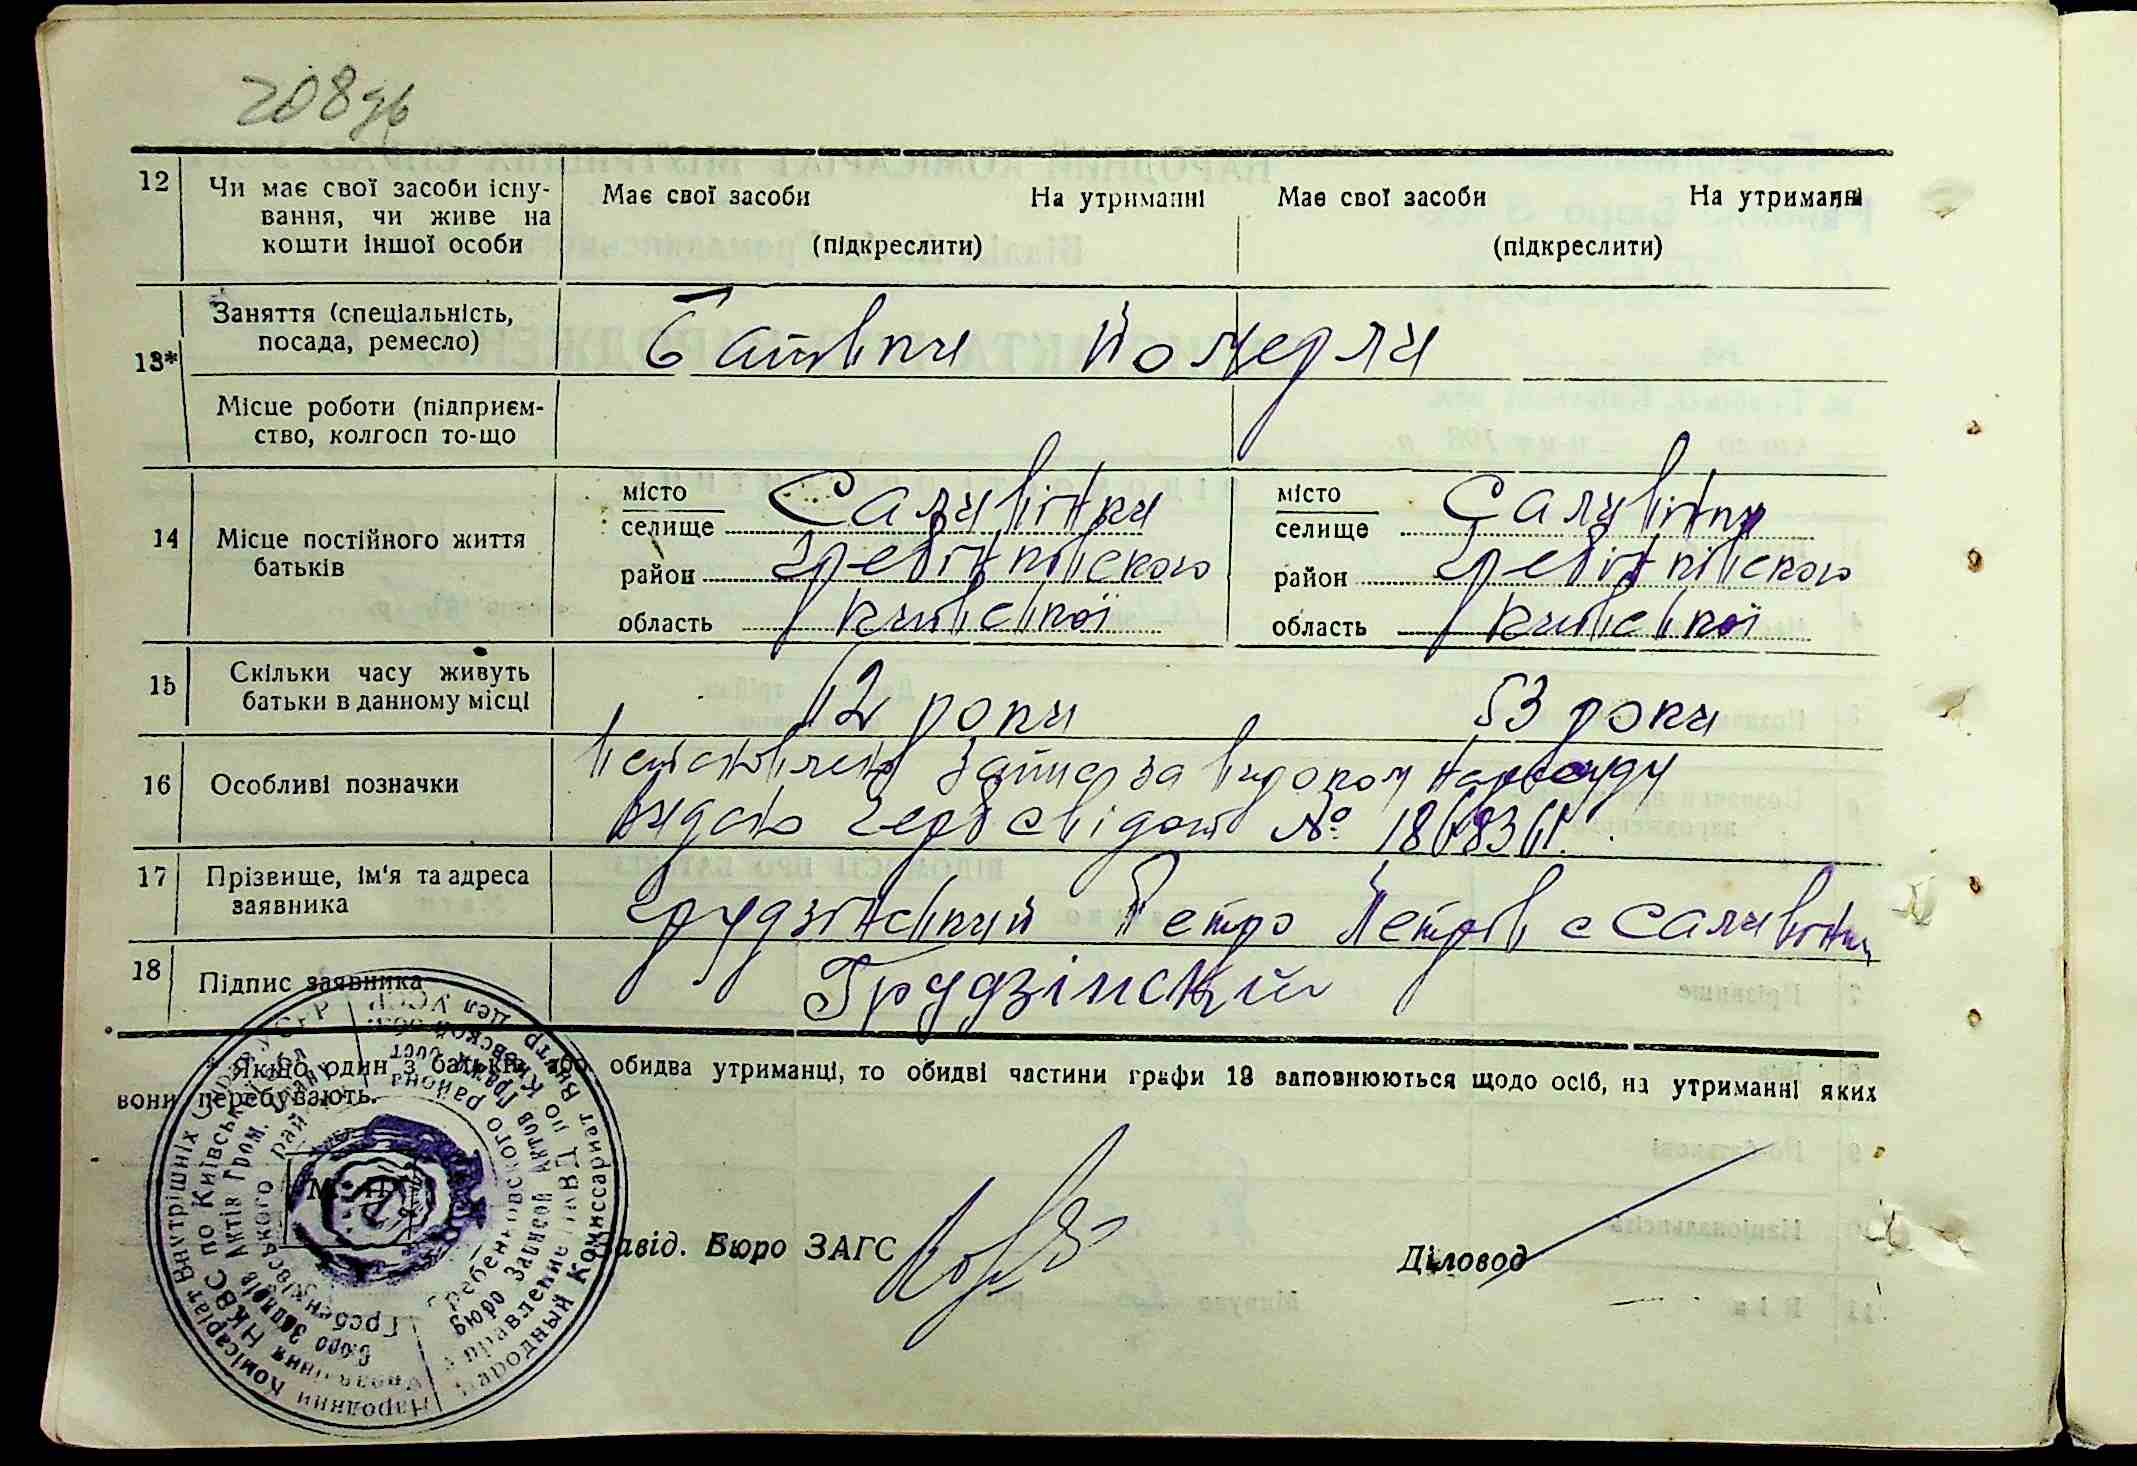 208зв
12 Чи має свої засоби існу-
вання, чи живе на
кошти іншої особи
Має свої засоби На утриманні
(підкреслити)
Має свої засоби На утриманні
(підкреслити)
13* Заняття (спеціальність,
посада, ремесло)
Батьки померли
Місце роботи (підприєм-
ство, колгосп то-що
14 Місце постійного життя
батьків
місто
селище Саливінки
район Гребінківского
область Київської
місто
селище Саливінки
район Гребінківского
область Київської
15 Скільки часу живуть
батьки в данному місці
62 роки 53 роки
16 Особливі позначки
Встановлено запис за вироком нарсуду
Видано свідот №
17 Прізвище, ім'я та адреса
заявника
Грудзінський Петро Петров с Саливінки
18 Підпис заявника
Грудзінский
* Якщо один з батьків або обидва утриманці, то обидві частини графи 13 заповнюються щодо осіб, на утриманні яких
вони перебувають.
Завід. Бюро ЗАГС
Діловод
М. П.
Народний Комісаріат Внутрішніх Справ УСРР
Управління НКВС по Київській обл.
Бюро Записів Актів Гром. Стану
Гребенківського району
Народный Комиссариат Внутр. Дел УССР
Управление НКВД по Киевской обл.
Бюро Записи Актов Гражд. Сост
Гребенковского района